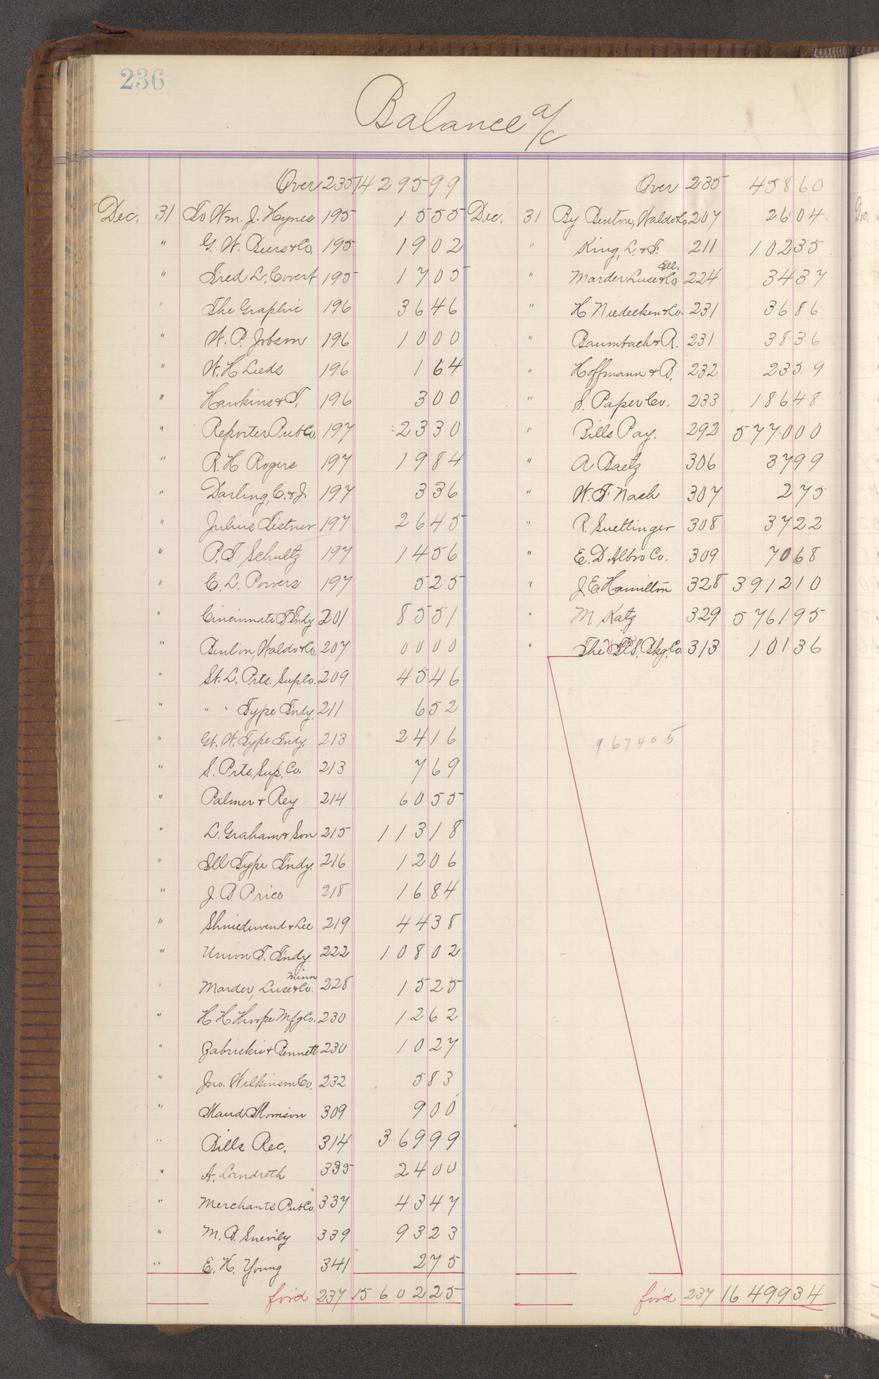 236
Balance a/c
Over 235 14 295 99
Dec. 31 To Wm. J. Haynes 195 15 55
" G. W. Piers & Co. 195 19 02
" Fred L. Covert 195 17 05
" The Graphic 196 36 46
" W. P. Jobson 196 10 00
" W. H. Leeds 196 1 64
" Hawkins & T. 196 3 00
" Reporter Pub Co. 197 23 30
" R. H. Rogers 197 19 84
" Darling, C. & J. 197 3 36
" Julius Festner 197 26 45
" P. T. Schultz 197 14 56
" C. L. Powers 197 5 25
" Cincinnati T. Fndy. 201 85 51
" Benton, Waldo & Co. 207 00 00
" St. L. Prts. Sup Co. 209 45 46
" " " Type Fndy. 211 6 52
" Gt. W. Type Fndy. 213 24 16
" S. Prts. Sup. Co. 213 7 69
" Palmer & Rey 214 60 55
" L. Graham & Son 215 113 18
" Ill Type Fndy. 216 12 06
" J. B. Price 218 16 84
" Shniedwend & Lee 219 44 38
" Union T. Fndy. 222 108 02
" Marder, Luse & Co. Minn 228 15 25
" H. H. Thorpe Mfg Co. 230 12 62
" Zabriskie & Bennett 230 10 27
" Jno. Wilkinson Co. 232 5 83
" Maud Morrison 309 9 00
" Bills Rec. 314 369 99
" A. Landreth 335 24 00
" Merchants Pub Co. 337 43 47
" M. B. Snevily 339 93 23
" E. H. Young 341 2 75
for'd 237 15 602 25
Over 235 458 60
Dec. 31 By Benton, Waldo & Co. 207 26 04
" King, L. & F. 211 102 35
" Marder Luse & Co. Ill. 224 34 37
" H. Niedecken & Co. 231 36 86
" Baumbach & R. 231 38 36
" Hoffmann & B. 232 23 59
" S. Paper Co. 233 186 48
" Bills Pay. 292 5 770 00
" A Baetz 306 37 99
" W. F. Nach 307 2 75
" R. Suettinger 308 37 22
" E. D. Albro Co. 309 70 68
" J. E. Hamilton 328 3 912 10
" M Katz 329 5 761 95
" The Pkg. Co. 313 101 36
967405
for'd 237 16 499 34